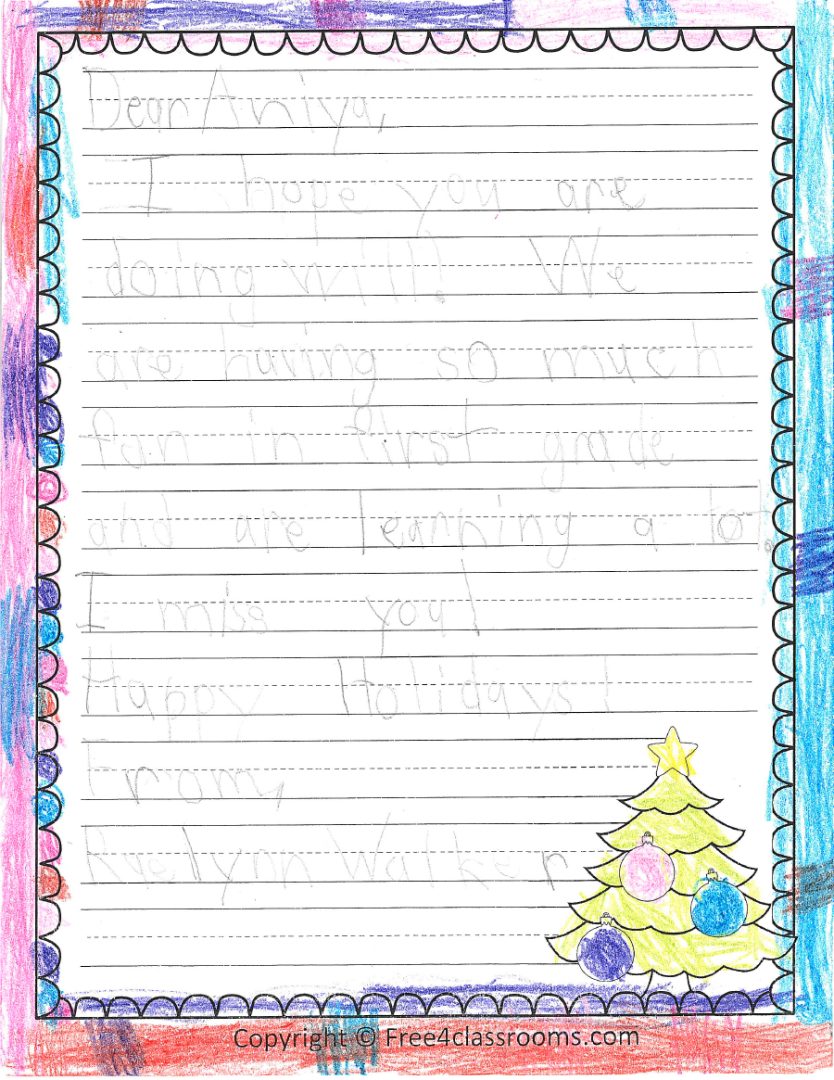 Dear Aniya,
I hope you are
doing will! We
are having so much
fun in first grade
and are learning a lot.
I miss you!
Happy Holidays!
From,
Raelynn Walker
Copyright © Free4classrooms.com